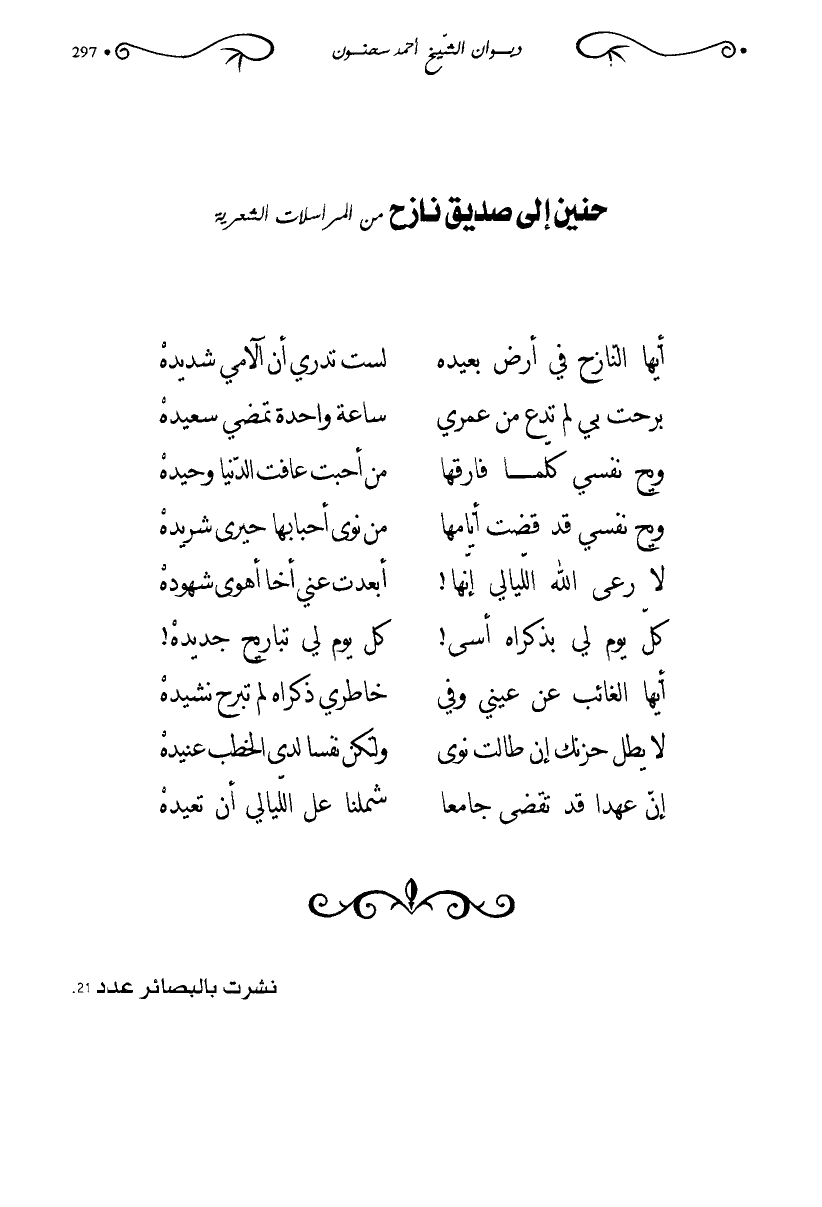 ديوان الشيخ أحمد سحنون 297
حنين إلى صديق نازح من المراسلات الشعرية
أيها النّازح في أرض بعيده لست تدري أن آلامي شديدهْ
برحت بي لم تدع من عمري ساعة واحدة تمضي سعيدهْ
ويح نفسي كلّمـا فارقها من أحبت عافت الدّنيا وحيدهْ
ويح نفسي قد قضت أيّامها من نوى أحبابها حيرى شريدهْ
لا رعى الله اللّيالي إنّها! أبعدت عني أخا أهوى شهودهْ
كلّ يوم لي بذكراه أسى! كل يوم لي تباريح جديدهْ!
أيها الغائب عن عيني وفي خاطري ذكراه لم تبرح نشيدهْ
لا يطل حزنك إن طالت نوى ولتكن نفسا لدى الخطب عنيدهْ
إنّ عهدا قد تقضى جامعا شملنا عل اللّيالي أن تعيدهْ
نشرت بالبصائر عدد 21.